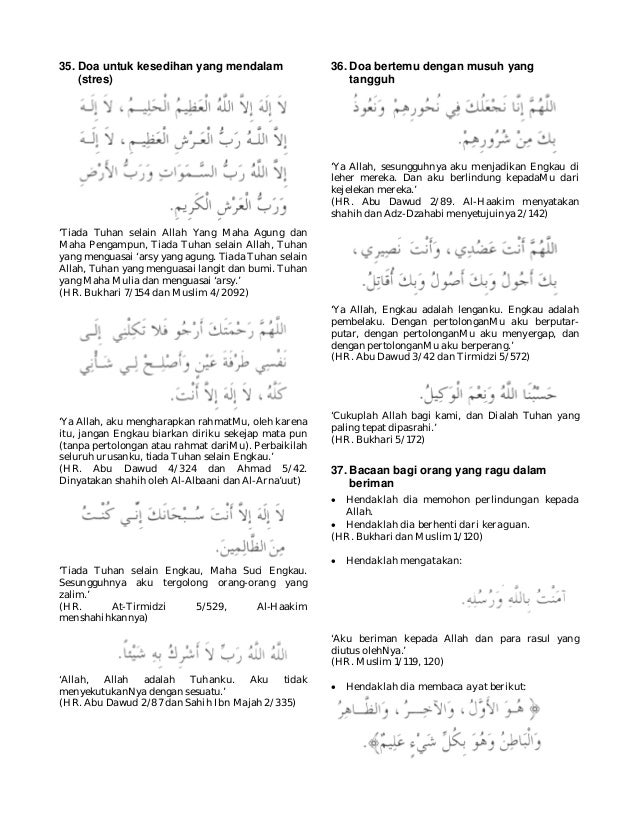 35. Doa untuk kesedihan yang mendalam
(stres)
لَا إِلَهَ إِلَّا اللَّهُ الْعَظِيْمُ الْحَلِيْمُ، لَا إِلَهَ
إِلَّا اللَّهُ رَبُّ الْعَرْشِ الْعَظِيْمِ، لَا إِلَهَ
إِلَّا اللَّهُ رَبُّ السَّمَوَاتِ وَرَبُّ الْأَرْضِ
وَرَبُّ الْعَرْشِ الْكَرِيمِ.
‘Tiada Tuhan selain Allah Yang Maha Agung dan
Maha Pengampun, Tiada Tuhan selain Allah, Tuhan
yang menguasai ‘arsy yang agung. Tiada Tuhan selain
Allah, Tuhan yang menguasai langit dan bumi. Tuhan
yang Maha Mulia dan menguasai ‘arsy.’
(HR. Bukhari 7/154 dan Muslim 4/2092)
اللَّهُمَّ رَحْمَتَكَ أَرْجُو فَلَا تَكِلْنِي إِلَى
نَفْسِي طَرْفَةَ عَيْنٍ وَأَصْلِحْ لِي شَأْنِي
كُلَّهُ، لَا إِلَهَ إِلَّا أَنْتَ.
‘Ya Allah, aku mengharapkan rahmatMu, oleh karena
itu, jangan Engkau biarkan diriku sekejap mata pun
(tanpa pertolongan atau rahmat dariMu). Perbaikilah
seluruh urusanku, tiada Tuhan selain Engkau.’
(HR. Abu Dawud 4/324 dan Ahmad 5/42.
Dinyatakan shahih oleh Al-Albaani dan Al-Arna’uut)
لَا إِلَهَ إِلَّا أَنْتَ سُبْحَانَكَ إِنِّي كُنْتُ
مِنَ الظَّالِمِينَ.
‘Tiada Tuhan selain Engkau, Maha Suci Engkau.
Sesungguhnya aku tergolong orang-orang yang
zalim.’
(HR. At-Tirmidzi 5/529, Al-Haakim
menshahihkannya)
اللَّهُ اللَّهُ رَبِّ لَا أُشْرِكُ بِهِ شَيْئاً.
‘Allah, Allah adalah Tuhanku. Aku tidak
menyekutukanNya dengan sesuatu.’
(HR. Abu Dawud 2/87 dan Sahih Ibn Majah 2/335)
36. Doa bertemu dengan musuh yang
tangguh
اللَّهُمَّ إِنَّا نَجْعَلُكَ فِي نُحُورِهِمْ وَنَعُوذُ
بِكَ مِنْ شُرُورِهِمْ.
‘Ya Allah, sesungguhnya aku menjadikan Engkau di
leher mereka. Dan aku berlindung kepadaMu dari
kejelekan mereka.’
(HR. Abu Dawud 2/89. Al-Haakim menyatakan
shahih dan Adz-Dzahabi menyetujuinya 2/142)
اللَّهُمَّ أَنْتَ عَضُدِي، وَأَنْتَ نَصِيرِي،
بِكَ أَحُولُ وَبِكَ أَصُولُ وَبِكَ أُقَاتِلُ.
‘Ya Allah, Engkau adalah lenganku. Engkau adalah
pembelaku. Dengan pertolonganMu aku berputar-
putar, dengan pertolonganMu aku menyergap, dan
dengan pertolonganMu aku berperang.’
(HR. Abu Dawud 3/42 dan Tirmidzi 5/572)
حَسْبُنَا اللَّهُ وَنِعْمَ الْوَكِيلُ.
‘Cukuplah Allah bagi kami, dan Dialah Tuhan yang
paling tepat dipasrahi.’
(HR. Bukhari 5/172)
37. Bacaan bagi orang yang ragu dalam
beriman
• Hendaklah dia memohon perlindungan kepada
Allah.
• Hendaklah dia berhenti dari keraguan.
(HR. Bukhari dan Muslim 1/120)
• Hendaklah dia mengatakan:
آمَنْتُ بِاللَّهِ وَرُسُلِهِ.
‘Aku beriman kepada Allah dan para rasul yang
diutus olehNya.’
(HR. Muslim 1/119, 120)
• Hendaklah dia membaca ayat berikut:
﴿ هُوَ الْأَوَّلُ، وَالْآخِرُ، وَالظَّاهِرُ
وَالْبَاطِنُ وَهُوَ بِكُلِّ شَيْءٍ عَلِيمٌ﴾.